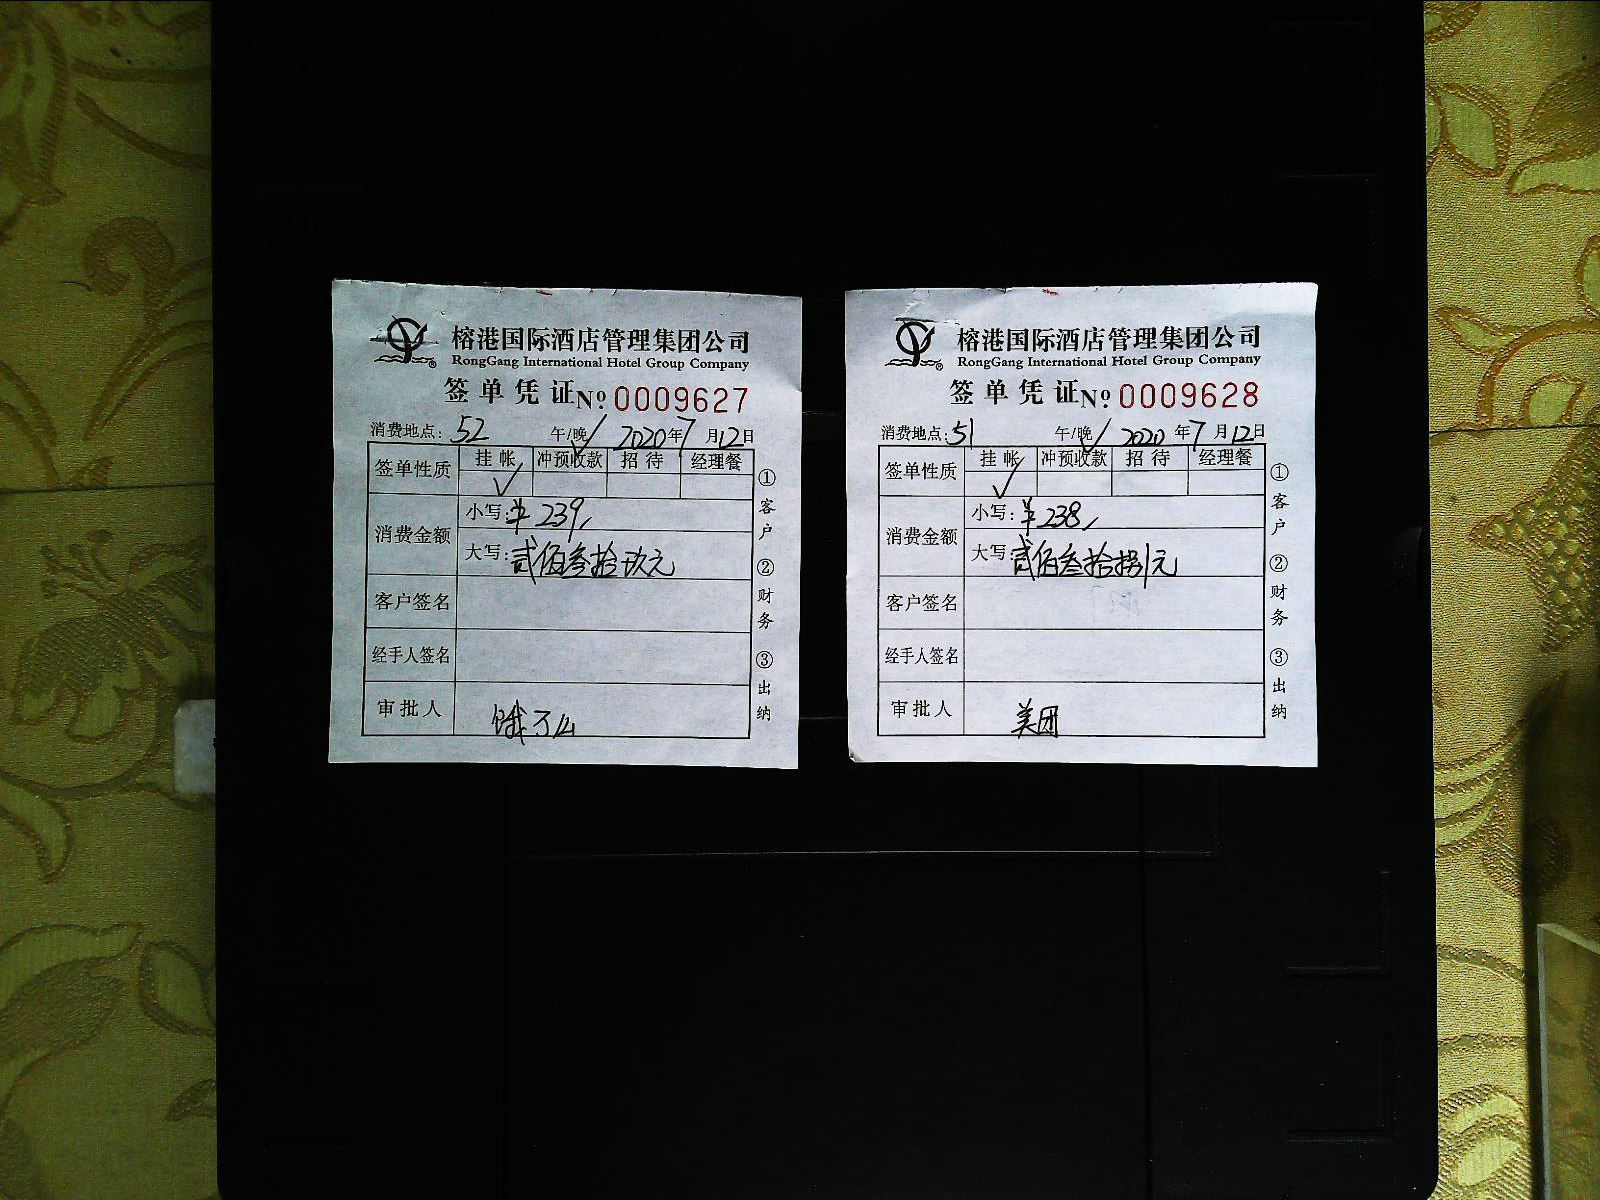 榕港国际酒店管理集团公司
RongGang International Hotel Group Company
签单凭证 Nº 0009627
消费地点: 52 午/晚✓ 2020年7月12日
签单性质 挂帐 冲预收款 招待 经理餐
✓
消费金额
小写: ¥239
大写: 贰佰叁拾玖元
客户签名
经手人签名
审批人 饿了么
①客户 ②财务 ③出纳
榕港国际酒店管理集团公司
RongGang International Hotel Group Company
签单凭证 Nº 0009628
消费地点: 51 午/晚✓ 2020年7月12日
签单性质 挂帐 冲预收款 招待 经理餐
✓
消费金额
小写: ¥238
大写: 贰佰叁拾捌元
客户签名
经手人签名
审批人 美团
①客户 ②财务 ③出纳